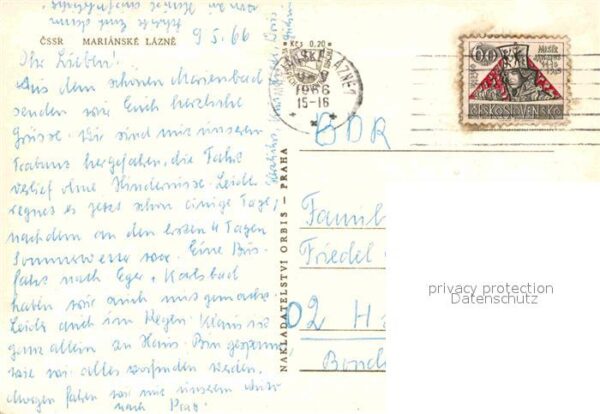 ČSSR MARIÁNSKÉ LÁZNĚ
9 5. 66
Ihr Lieben!
Aus dem schönen Marienbad
senden wir Euch herzliche
Grüsse. Wir sind mit unserem
Trabant hergefahren, die Fahrt
verlief ohne Hindernisse. Leider
regnet es jetzt schon einige Tage,
nachdem an den ersten 4 Tagen
Sommerwetter war. Eine Bus-
fahrt nach Eger, Karlsbad
haben wir auch mitgemacht.
Leider auch im Regen. Klaus ist
ganz allein zu Haus. Bin gespannt
wie wir alles vorfinden werden.
Morgen fahren wir mit unserem Auto
nach Prag.
NAKLADATELSTVÍ ORBIS – PRAHA
Kčs 0,20
1966
15-16
60
ČESKOSLOVENSKO
BDR
Famil
Friedel
02 H
privacy protection
Datenschutz